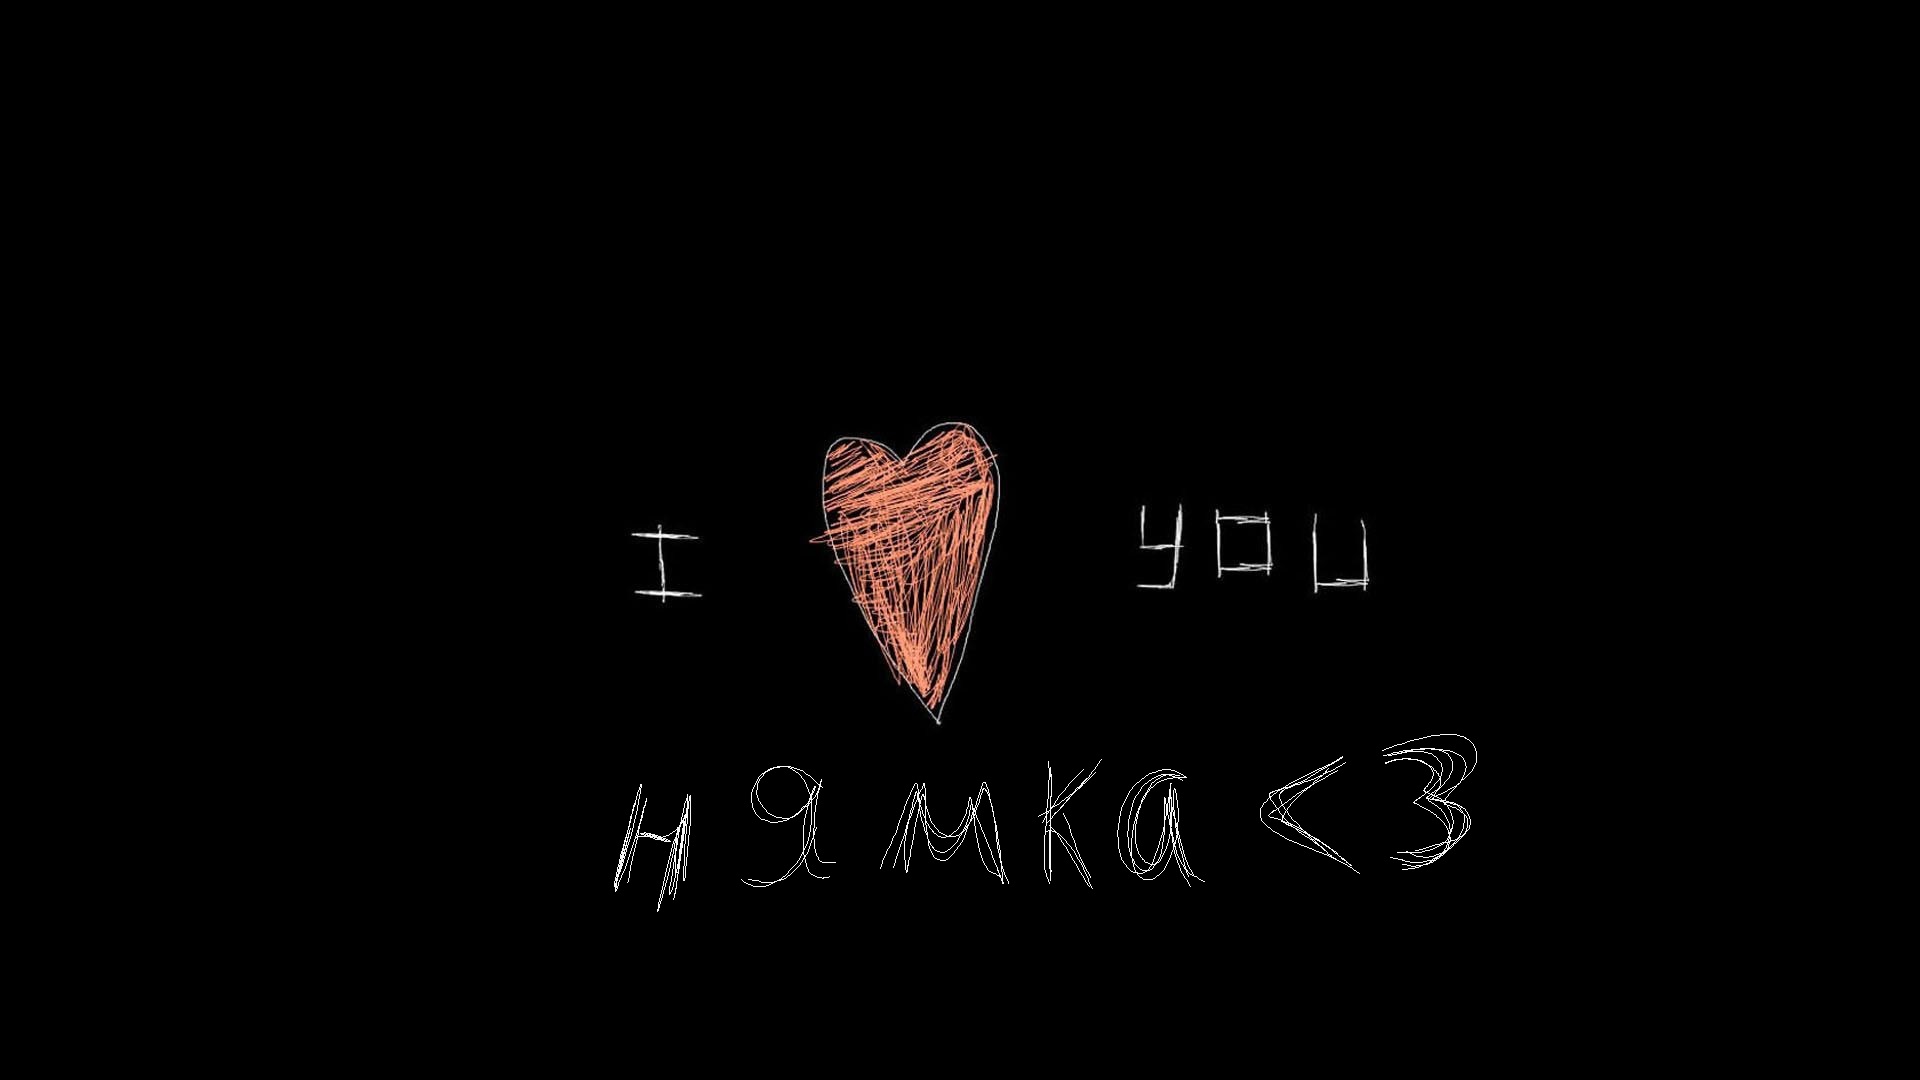 I you
нямка<3